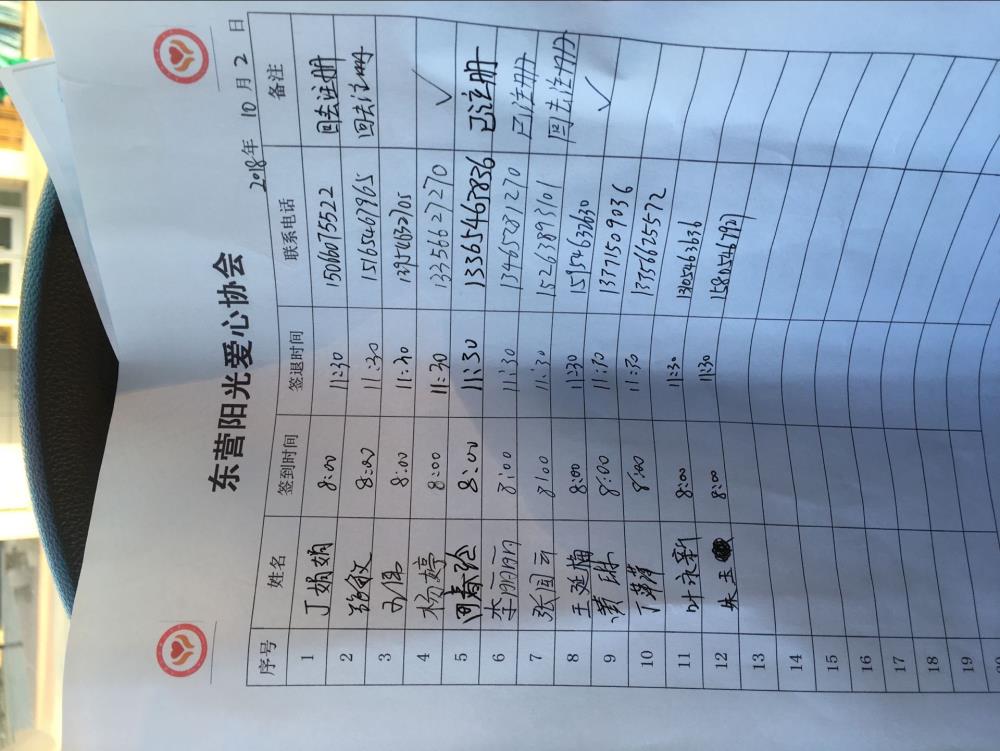 东营阳光爱心协会
2018年 10月 2 日
序号 姓名 签到时间 签退时间 联系电话 备注
1 丁娟娟 8:00 11:30 15066075522 回去注册
2 8:00 11:30 15165467965 回去注册
3 8:00 11:30
4 杨婷 8:00 11:30 13356627270 ✓
5 8:00 11:30 13365465836 已注册
6 李明明 8:00 11:30 13465281270 已注册
7 张国云 8:00 11:30 15263893101 回去注册
8 王延梅 8:00 11:30 15954632630
9 黄琳 8:00 11:30 13371509036 ✓
10 丁萍萍 8:00 11:30 13356625572
11 叶永新 8:00 11:30
12 朱玉 8:00 11:30
13
14
15
16
17
18
19
20